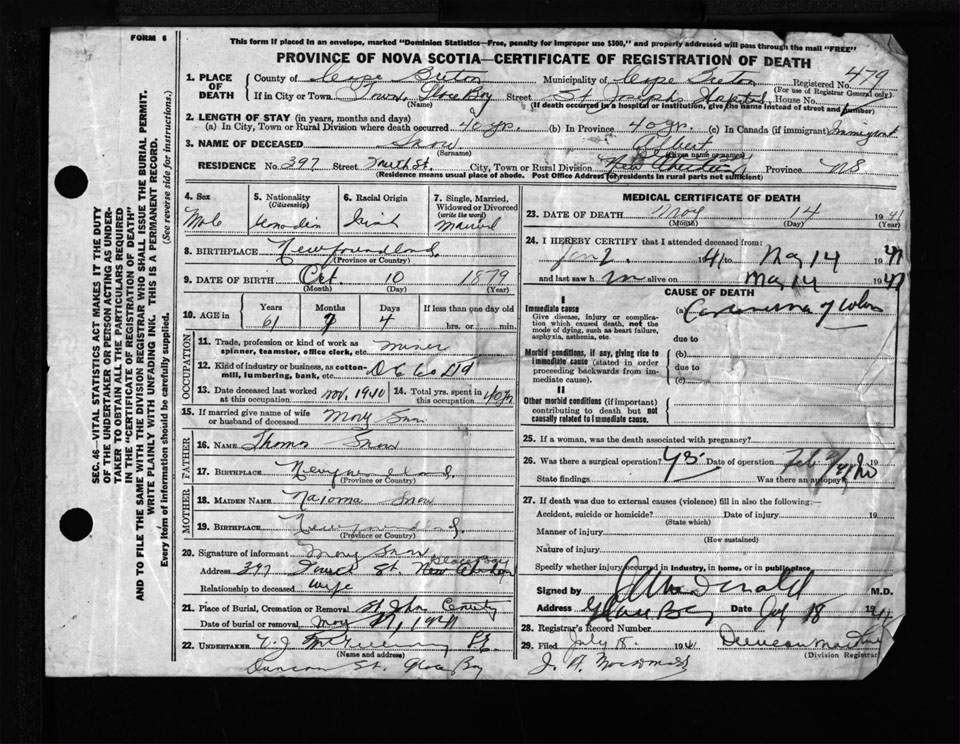 FORM 6
This form if placed in an envelope, marked "Dominion Statistics—Free, penalty for improper use $300," and properly addressed will pass through the mail "FREE"
PROVINCE OF NOVA SCOTIA—CERTIFICATE OF REGISTRATION OF DEATH
SEC. 46—VITAL STATISTICS ACT MAKES IT THE DUTY
OF THE UNDERTAKER OR PERSON ACTING AS UNDER-
TAKER TO OBTAIN ALL THE PARTICULARS REQUIRED
IN THE "CERTIFICATE OF REGISTRATION OF DEATH"
AND TO FILE THE SAME WITH THE DIVISION REGISTRAR WHO SHALL ISSUE THE BURIAL PERMIT.
WRITE PLAINLY WITH UNFADING INK. THIS IS A PERMANENT RECORD.
Every item of information should be carefully supplied. (See reverse side for instructions.)
1. PLACE OF DEATH
County of Cape Breton Municipality of Cape Breton Registered No. 479
(For use of Registrar General only)
If in City or Town Town, Glace Bay Street St Josephs Hospital House No.
(Name) (If death occurred in a hospital or institution, give the name instead of street and number)
2. LENGTH OF STAY (in years, months and days)
(a) In City, Town or Rural Division where death occurred 40 yr. (b) In Province 40 yr. (c) In Canada (if immigrant) Immigrant
3. NAME OF DECEASED Snow Albert
(Surname) (Given name or names)
RESIDENCE No. 397 Street City, Town or Rural Division New Aberdeen Province NS
(Residence means usual place of abode. Post Office Address for residents in rural parts not sufficient)
4. Sex Male
5. Nationality (Citizenship) Canadian
6. Racial Origin Irish
7. Single, Married, Widowed or Divorced (write the word) Married
8. BIRTHPLACE Newfoundland
(Province or Country)
9. DATE OF BIRTH Oct 10 1879
(Month) (Day) (Year)
10. AGE in Years 61 Months 7 Days 4 If less than one day old hrs. or min.
OCCUPATION
11. Trade, profession or kind of work as spinner, teamster, office clerk, etc. miner
12. Kind of industry or business, as cotton-mill, lumbering, bank, etc. D C Co LTD
13. Date deceased last worked at this occupation Nov. 1940 14. Total yrs. spent in this occupation 40 yr
15. If married give name of wife or husband of deceased Mary Snow
FATHER
16. NAME Thomas Snow
17. BIRTHPLACE Newfoundland
(Province or Country)
MOTHER
18. MAIDEN NAME Naioma Snow
19. BIRTHPLACE Newfoundland
(Province or Country)
20. Signature of informant Mary Snow
Glace Bay
Address 397 St. New Aberdeen
Relationship to deceased wife
21. Place of Burial, Cremation or Removal St John
Date of burial or removal May 1941
22. UNDERTAKER
(Name and address)
Duncan St. Glace Bay
MEDICAL CERTIFICATE OF DEATH
23. DATE OF DEATH May 14 1941
(Month) (Day) (Year)
24. I HEREBY CERTIFY that I attended deceased from:
Jan 2 1941 to May 14 1941
and last saw h im alive on May 14 1941
CAUSE OF DEATH
I
Immediate cause (a) Carcinoma of Colon
Give disease, injury or complication which caused death, not the mode of dying, such as heart failure, asphyxia, asthenia, etc.
due to
Morbid conditions, if any, giving rise to immediate cause (stated in order proceeding backwards from immediate cause).
(b)
due to
(c)
II
Other morbid conditions (if important) contributing to death but not causally related to immediate cause.
25. If a woman, was the death associated with pregnancy?
26. Was there a surgical operation? Yes Date of operation Feb 19
State findings Was there an autopsy? No
27. If death was due to external causes (violence) fill in also the following:—
Accident, suicide or homicide? Date of injury 19
(State which)
Manner of injury
(How sustained)
Nature of injury
Specify whether injury occurred in industry, in home, or in public place
Signed by M.D.
Address Glace Bay Date July 18 1941
28. Registrar's Record Number
29. Filed July 18 194
(Division Registrar)